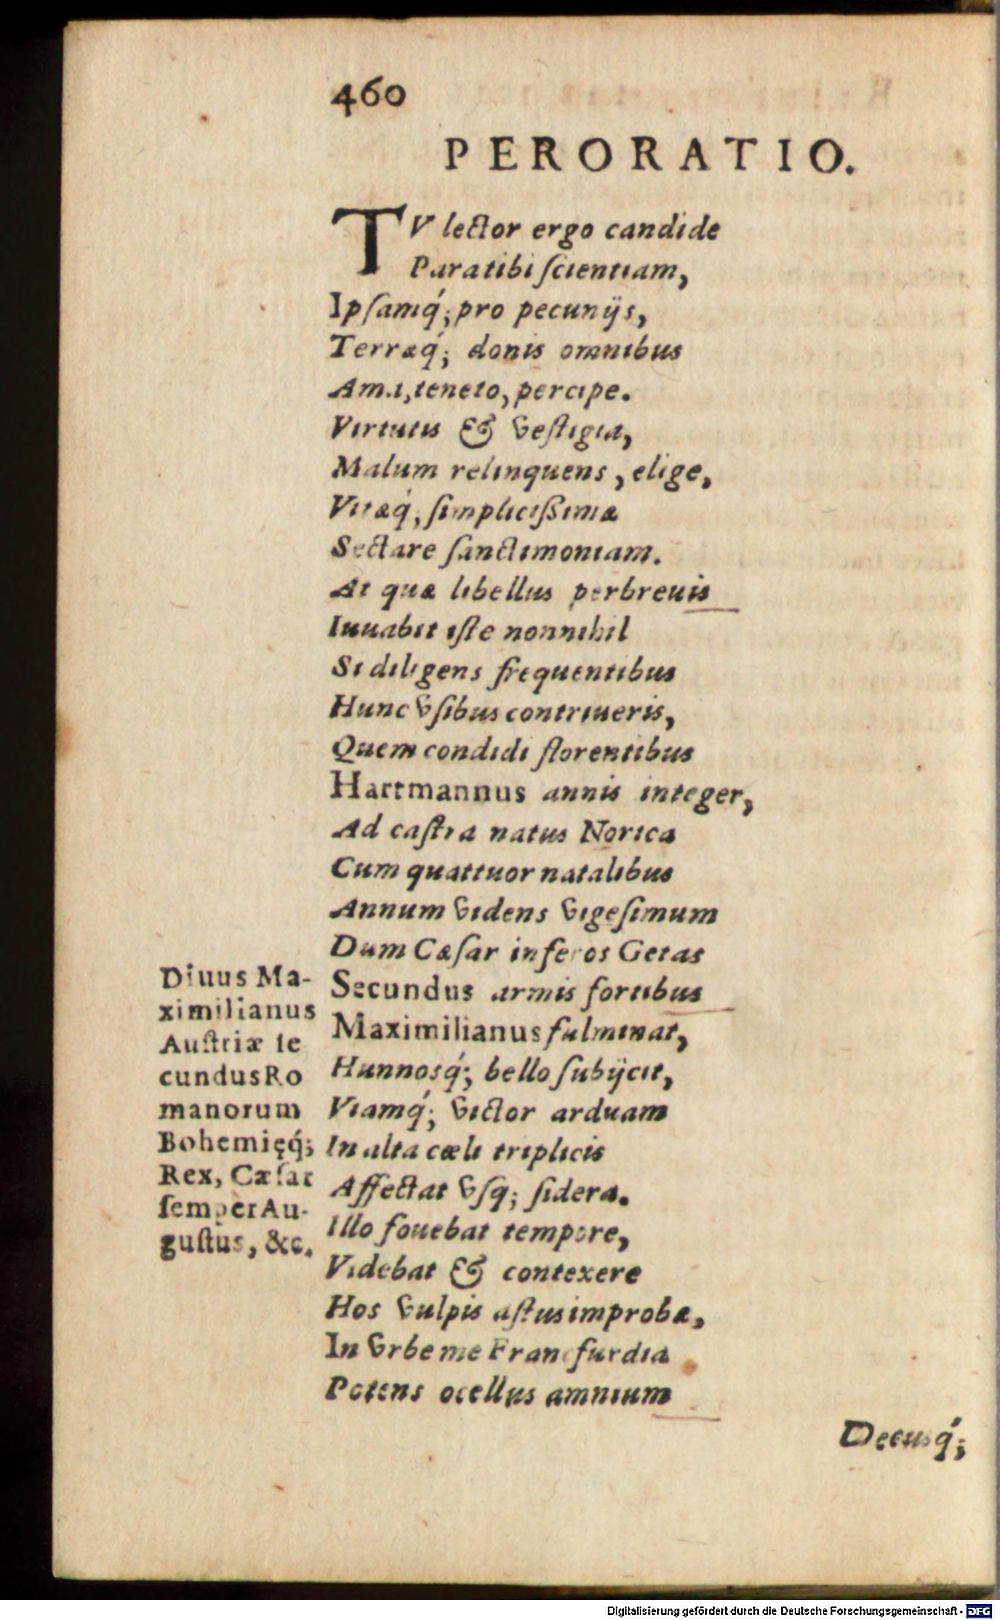 460
PERORATIO.
TV lector ergo candide
Para tibi scientiam,
Ipsamq́; pro pecunijs,
Terræq́; donis omnibus
Ama, teneto, percipe.
Virtutis & vestigia,
Malum relinquens, elige,
Vitæq́, simplicissimæ
Sectare sanctimoniam.
At quæ libellus perbreuis
Iuuabit iste nonnihil
Si diligens frequentibus
Hunc vsibus contriueris,
Quem condidi florentibus
Hartmannus annis integer,
Ad castra natus Norica
Cum quattuor natalibus
Annum videns vigesimum
Dum Cæsar inferos Getas
Secundus armis fortibus
Maximilianus fulminat,
Hunnosq́; bello subijcit,
Viamq́; victor arduam
In alta cœli triplicis
Affectat vsq; sidera.
Illo fouebat tempore,
Videbat & contexere
Hos vulpis astus improbæ,
In vrbe me Francfurdia
Potens ocellus amnium
Diuus Ma-
ximilianus
Austriæ se
cundus Ro
manorum
Bohemięq́;
Rex, Cæsar
semper Au-
gustus, &c.
Decusq́;
Digitalisierung gefördert durch die Deutsche Forschungsgemeinschaft - DFG